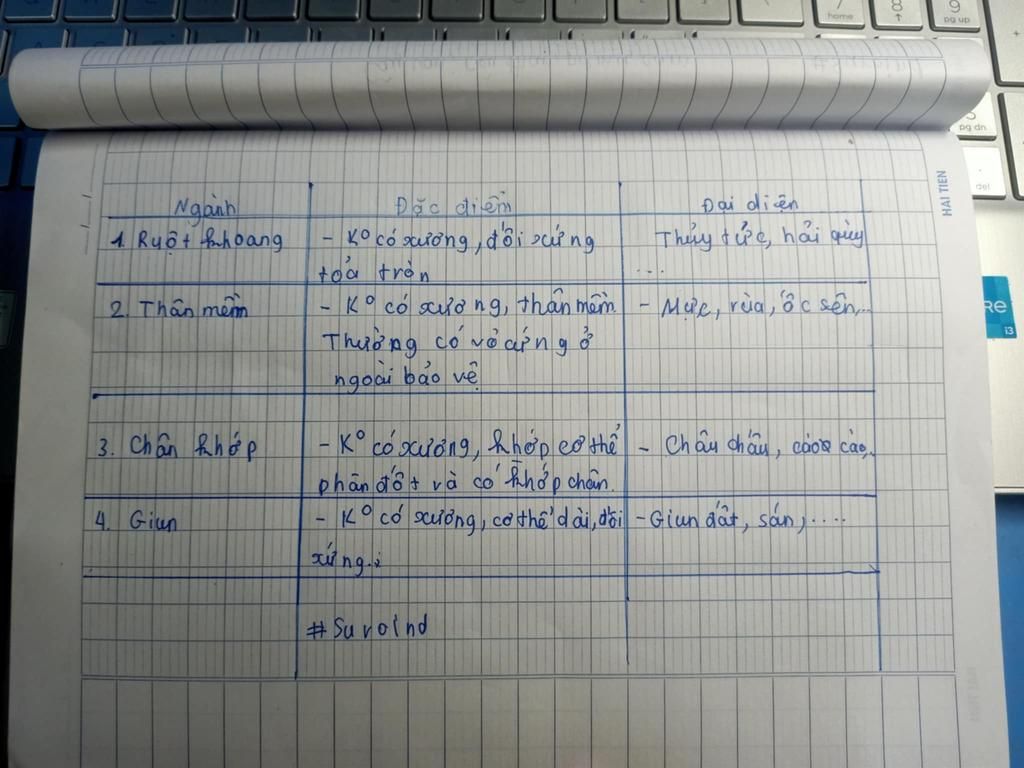 home
pg up
pg dn
del
HAI TIEN
RE
i3
Ngành Đặc điểm Đại diện
1. Ruột khoang - K° có xương, đối xứng Thủy tức, hải quỳ
toả tròn ...
2. Thân mềm - K° có xương, thân mềm - Mực, rùa, ốc sên,...
Thường có vỏ cứng ở
ngoài bảo vệ
3. Chân khớp - K° có xương, khớp cơ thể - Châu chấu, cào cào,
phân đốt và có khớp chân.
4. Giun - K° có xương, cơ thể dài, đối - Giun đất, sán, ....
xứng.
#Survolnd